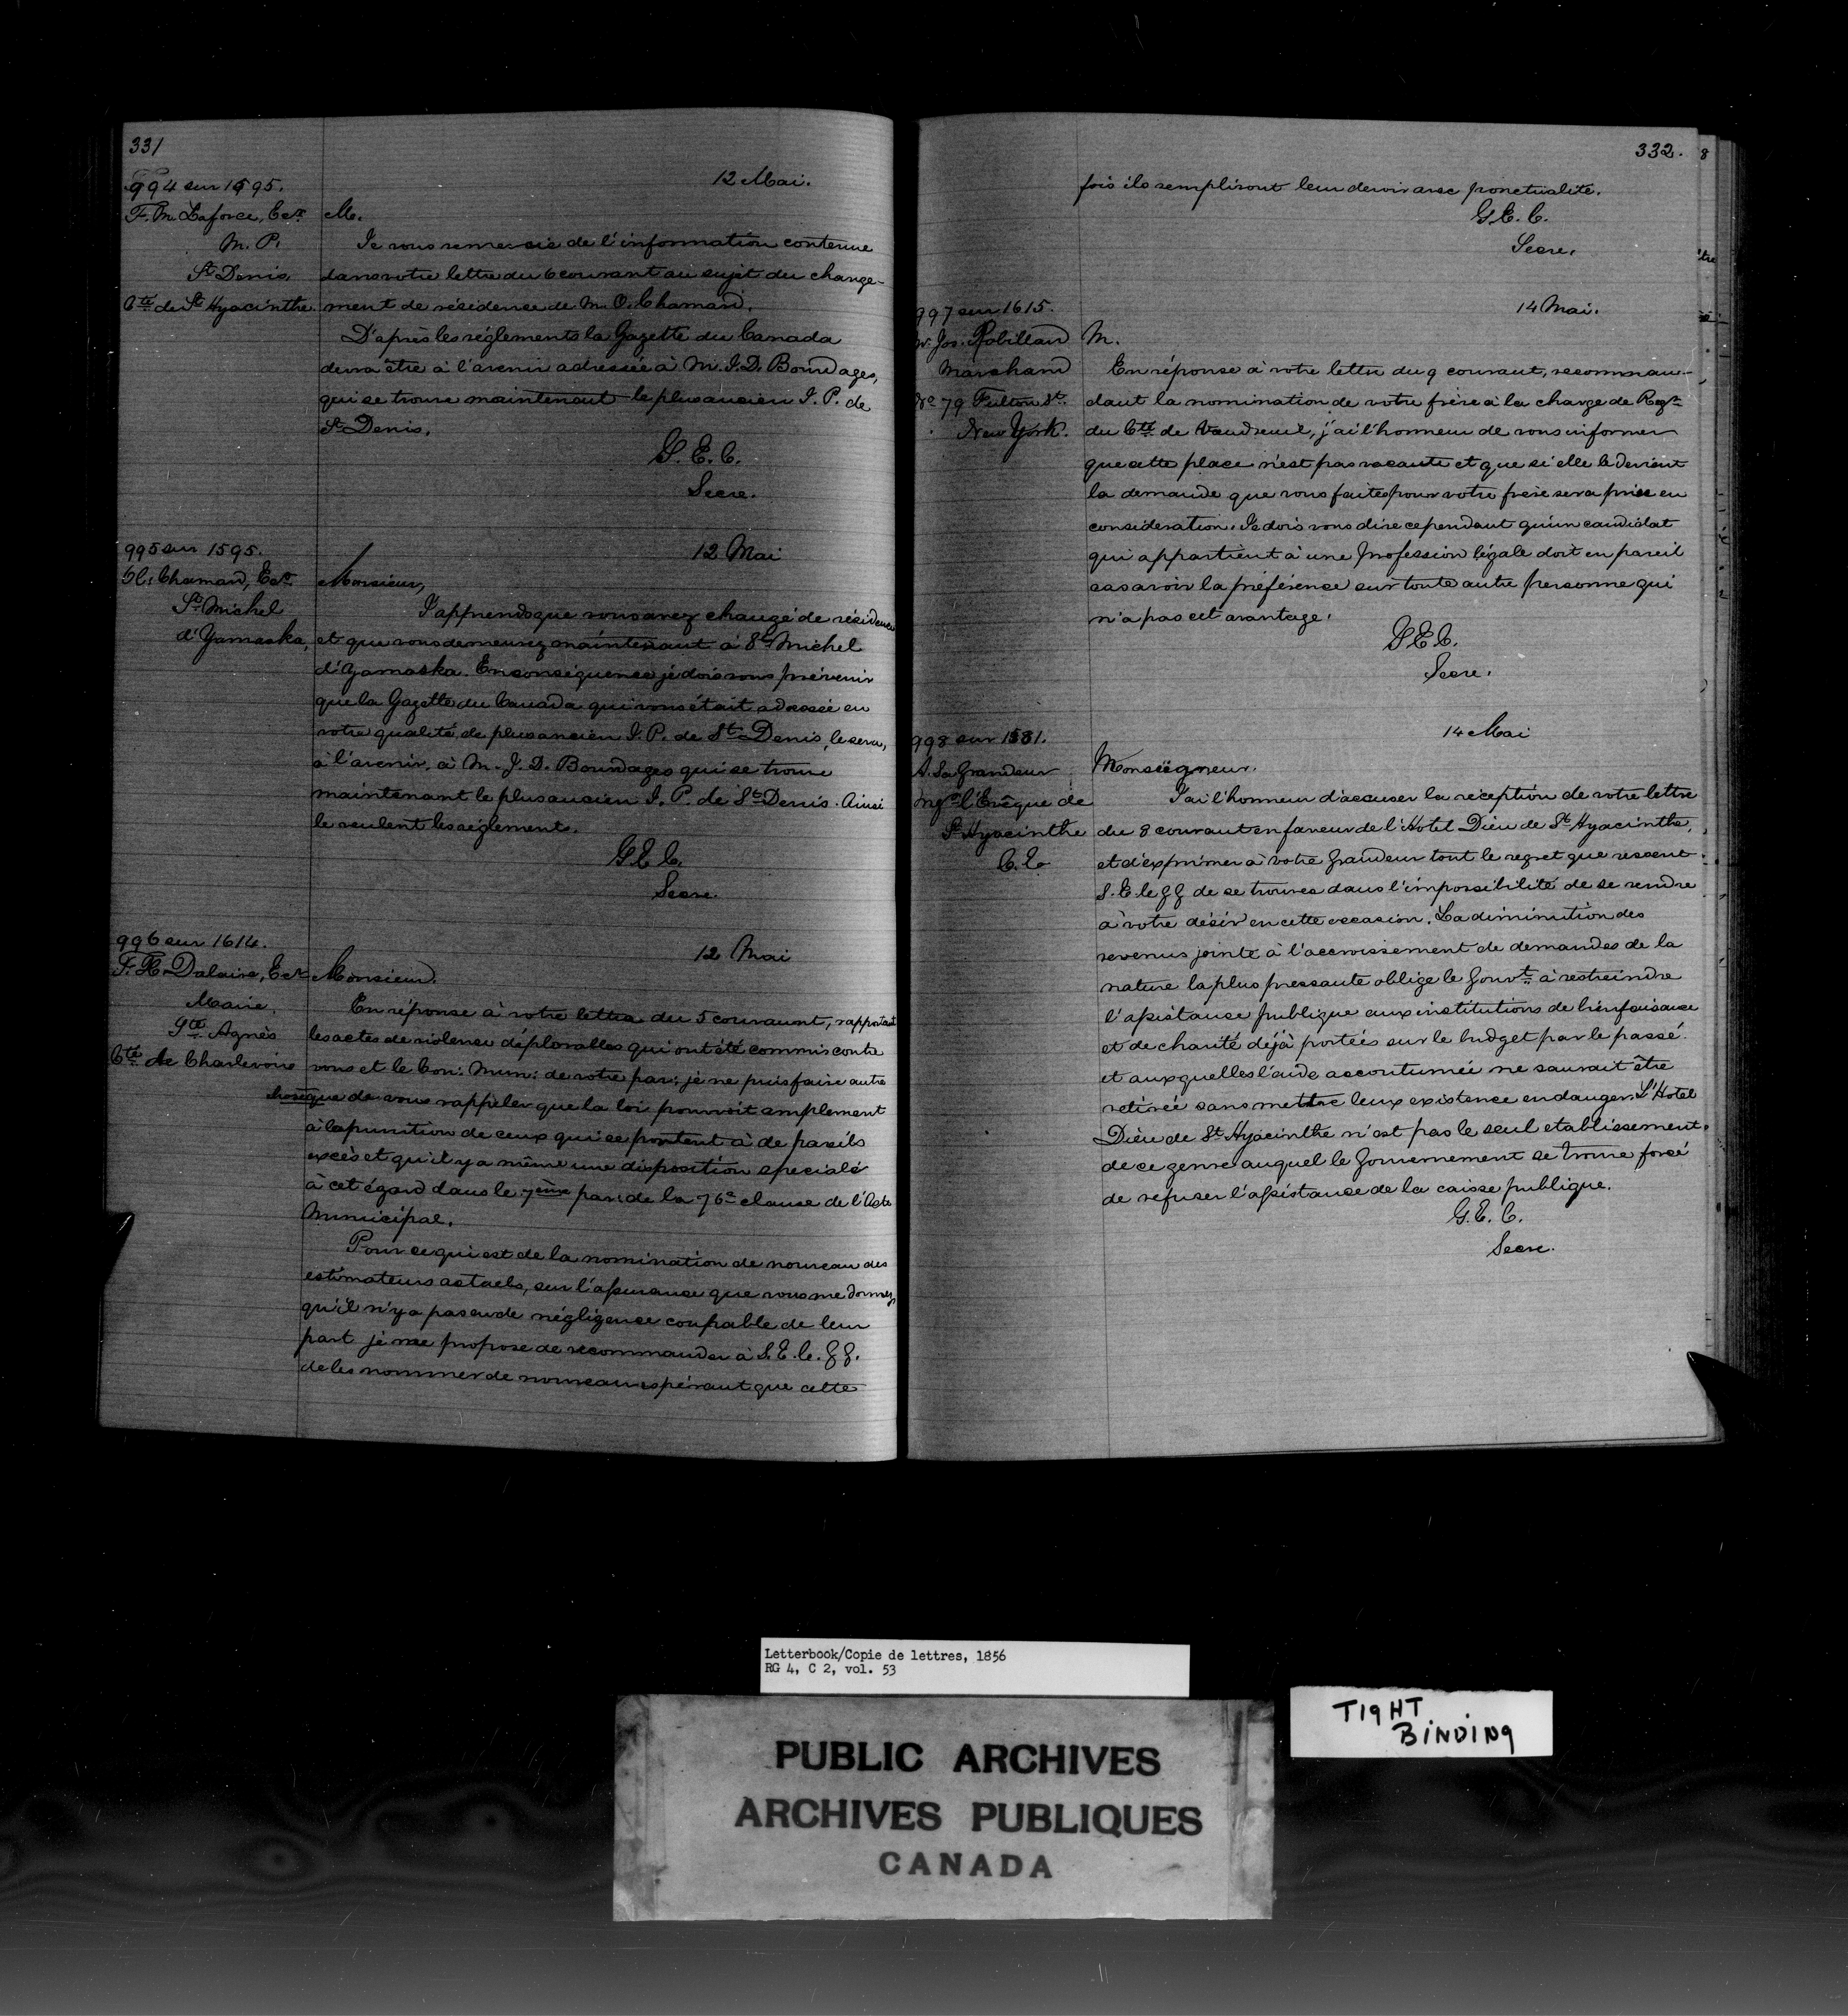 331
994 sur 1595.
F. M. Laforce, Ecr
M. P.
St Denis,
Cté de St Hyacinthe.
12 Mai.
M.
Je vous remercie de l'information contenue
dans votre lettre du 6 courant au sujet du change-
ment de résidence de M. O. Chamard.
D'après les réglements la Gazette du Canada
devra être à l'avenir adressée à M. J. D. Bourdages,
qui se trouve maintenant le plus ancien J. P. de
St Denis.
G. E. C.
Secre.
995 sur 1595.
Ol. Chamard, Ecr
St Michel
d'Yamaska,
12 Mai
Monsieur,
J'apprends que vous avez changé de résidence
et que vous demeurez maintenant à St Michel
d'Yamaska. En conséquence je dois vous prévenir
que la Gazette du Canada qui vous était adressée en
votre qualité de plus ancien J. P. de St Denis, le sera,
à l'avenir, à M. J. D. Bourdages qui se trouve
maintenant le plus ancien J. P. de St Denis. Ainsi
le veulent les réglements.
G E C.
Secre.
996 sur 1614.
F. X. Dalaire, Ecr
Maire.
Ste Agnès
Cté de Charlevoix
12 Mai
Monsieur.
En réponse à votre lettre du 5 courant, rapportant
les actes de violence déplorables qui ont été commis contre
vous et le Con: Mun: de votre par: je ne puis faire autre
chose que de vous rappeler que la loi pourvoit amplement
à la punition de ceux qui se portent à de pareils
excès et qu'il y a même une disposition speciale
à cet égard dans le 7ème par: de la 76e clause de l'Acte
Municipal.
Pour ce qui est de la nomination de nouveau des
estimateurs actuels, sur l'assurance que vous me donnez,
qu'il n'y a pas eu de négligence coupable de leur
part je me propose de recommander à S. E. le. G G.
de les nommer de nouveau espérant que cette
332.
fois ils rempliront leur devoir avec ponctualité.
G E. C.
Secre.
997 sur 1615.
Mr. Jos. Robillard
Marchand
No 79 Fulton St.
New York.
14 Mai.
M.
En réponse à votre lettre du 9 courant, recomman-
dant la nomination de votre frère à la charge de Regr
du Cté de Vaudreuil, j'ai l'honneur de vous informer
que cette place n'est pas vacante et que si elle le devient
la demande que vous faites pour votre frère sera prise en
consideration. Je dois vous dire cependant qu'un candidat
qui appartient à une profession légale doit en pareil
cas avoir la préférence sur toute autre personne qui
n'a pas cet avantage.
G E C.
Secre.
998 sur 1581.
A. Sa Grandeur
Mgr l'Evêque de
St Hyacinthe
C. E.
14 Mai
Monseigneur.
J'ai l'honneur d'accuser la réception de votre lettre
du 8 courant en faveur de l'Hotel Dieu de St Hyacinthe,
et d'exprimer à votre Grandeur tout le regret que ressent
S. E. le G G de se trouver dans l'impossibilité de se rendre
à votre désir en cette occasion. La diminution des
revenus jointe à l'accroissement de demandes de la
nature la plus pressante oblige le Gouvt à restreindre
l'assistance publique aux institutions de bienfaisance
et de charité déjà portées sur le budget par le passé.
et auxquelles l'aide accoutumée ne saurait être
retirée sans mettre leur existence en danger. L'Hotel
Dieu de St Hyacinthe n'est pas le seul etablissement
de ce genre auquel le Gouvernement se trouve forcé
de refuser l'assistance de la caisse publique.
G. E. C.
Secre.
Letterbook/Copie de lettres, 1856
RG 4, C 2, vol. 53
TIGHT
BINDING
PUBLIC ARCHIVES
ARCHIVES PUBLIQUES
CANADA